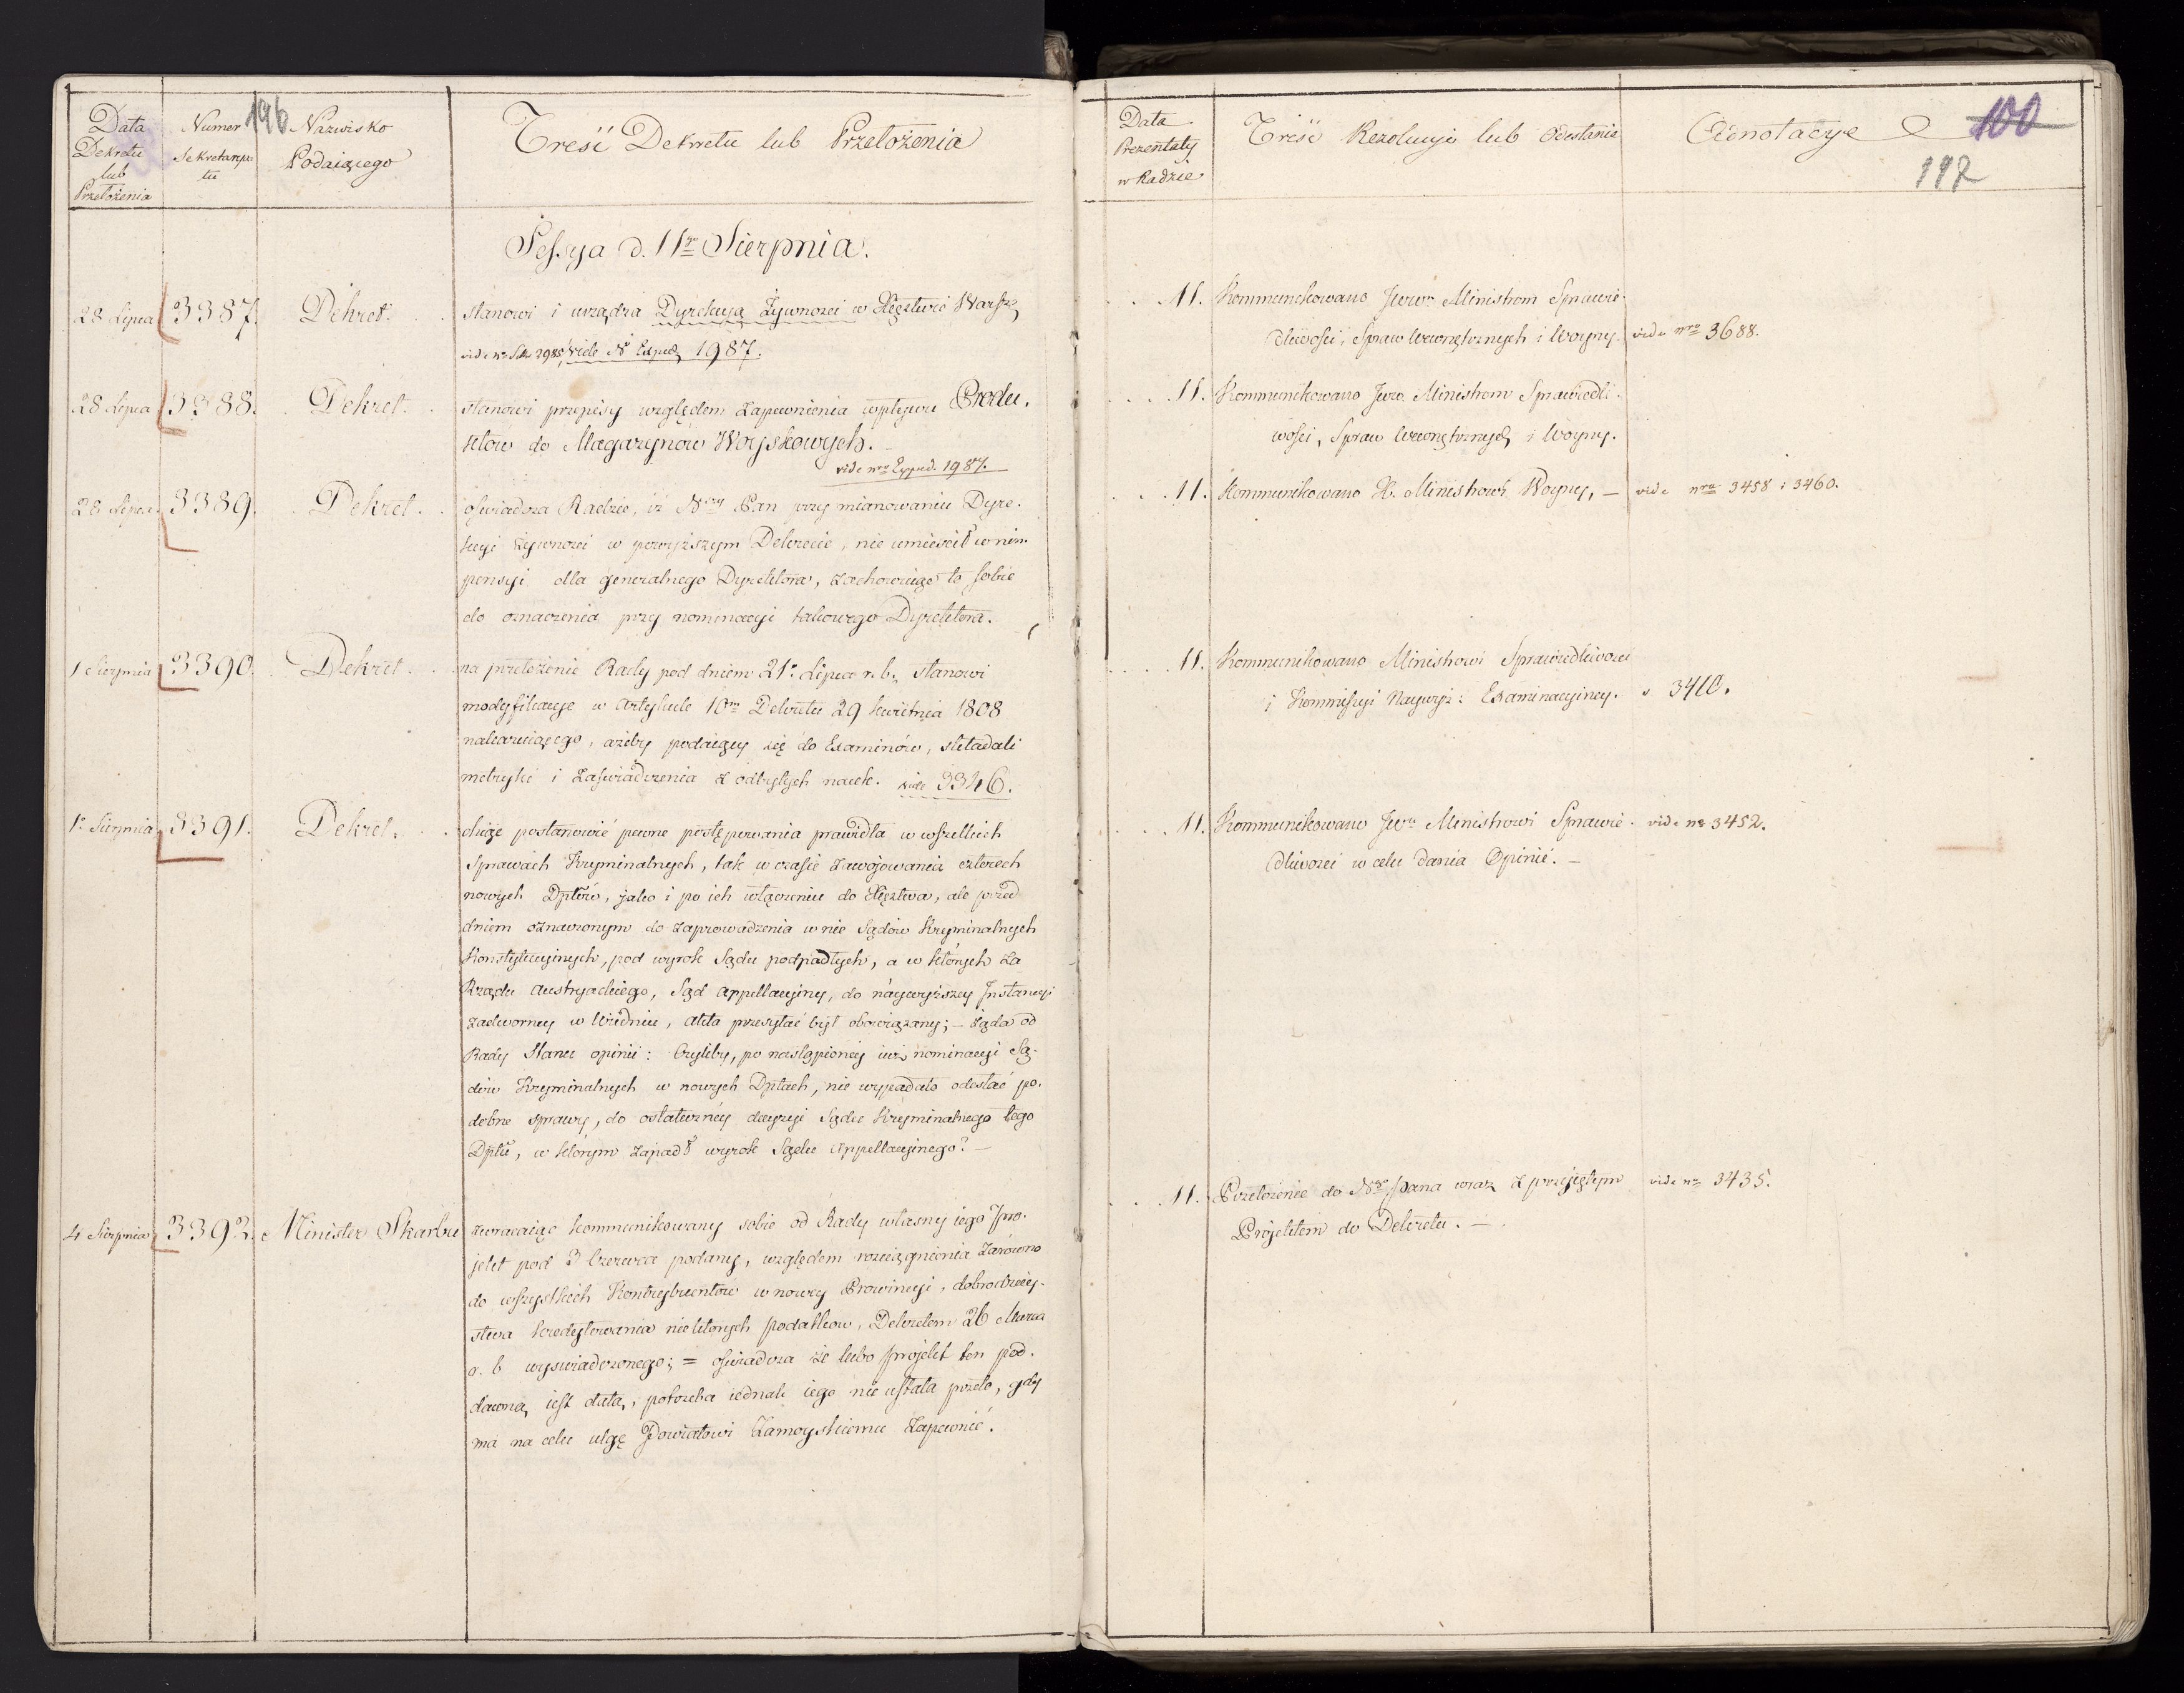 196
Data
Dekretu
lub
Przełożenia
Numer
Sekretaryatu
Nazwisko
Podaiącego
Treść Dekretu lub Przełożenia
Sessya d. 11go Sierpnia.
28 Lipca 3387. Dekret. stanowi i urządza Dyrekcyą Żywności w Xięstwie Warsz.
vide nro Sek. 2985 vide No Exped. 1987.
28 Lipca 3388. Dekret. stanowi przepisy względem zapewnienia wpływu Produ-
któw do Magazynów Woyskowych.
vide nro Exped. 1987.
28 Lipca 3389. Dekret. oświadcza Radzie, iż Nay Pan przy mianowaniu Dyre-
kcyi Żywności w powyższym Dekrecie, nie umieścił w nim
pensyi dla generalnego Dyrektora, zachowuiąc to sobie
do oznaczenia przy nominacyi takowego Dyrektora.
1 Sierpnia 3390. Dekret na przełożenie Rady pod dniem 21o Lipca r. b., stanowi
modyfikacye w Artykule 10m Dekretu 29 kwietnia 1808
nakazuiącego, ażeby podaiący się do Examinów, składali
metryki i Zaświadczenia z odbytych nauk. vide 3346.
1o Sierpnia 3391. Dekret. chcąc postanowić pewne postępowania prawidła w wszelkich
Sprawach Kryminalnych, tak w czasie zawojowania czterech
nowych Dptów, jako i po ich włączeniu do Xięstwa, ale przed
dniem oznaczonym do zaprowadzenia w nie Sądów Kryminalnych
Konstytucyinych, pod wyrok Sądu podpadłych, a w których za
Rządu Austryackiego, Sąd Appellacyiny, do naywyższey Instancyi
nadworney w Wiedniu, Akta przesyłać był obowiązany; – żąda od
Rady Stanu opinii: Czyliby, po nastąpioney iuż nominacyi Są-
dów Kryminalnych w nowych Dptach, nie wypadało odesłać po-
dobne sprawy, do ostateczney decyzyi Sądu Kryminalnego tego
Dptu, w którym zapadł wyrok Sądu Appellacyinego? –
4 Sierpnia 3392. Minister Skarbu zwracaiąc kommunikowany sobie od Rady własny iego Pro-
jekt pod 3 Czerwca podany, względem rozciągnienia zarówno
do wszystkich Kontrybuentów w nowey Prowincyi, dobrodziey-
stwa kredytowania niektórych podatków, Dekretem 26 Marca
r. b wyświadczonego; = oświadcza że lubo projekt ten pod
dawną iest datą, potrzeba iednak iego nie ustała przeto, gdy
ma na celu ulgę Powiatowi Zamoyskiemu zapewnić.
Data
Prezentaty
w Radzie
Treść Rezolucyi lub Odesłania
Adnotacye
100
197
11. Kommunikowano Jwm Ministrom Sprawie-
dliwości, Spraw Wewnętrznych i Woyny. vide nro 3688.
11. Kommunikowano Jwm Ministrom Sprawiedli-
wości, Spraw Wewnętrznych i Woyny.
11. Kommunikowano X. Ministrowi Woyny, – vide nra 3458 i 3460.
11. Kommunikowano Ministrowi Sprawiedliwości
i Kommissyi Naywyż: Examinacyiney. v. 3410.
11. Kommunikowano Jwu Ministrowi Sprawie- vide nr 3452.
dliwości w celu dania Opinii. –
11. Przełożenie do Ngo Pana wraz z przyjętym vide nr 3435.
Projektem do Dekretu. –